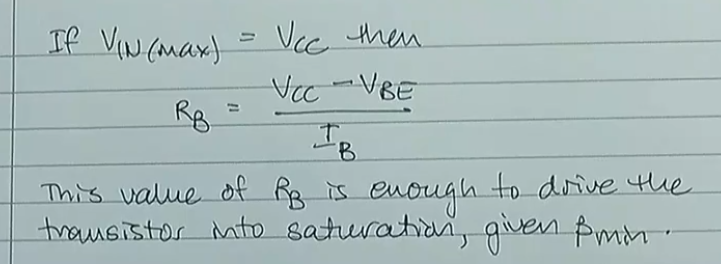 If VIN(max) = VCC then
RB = VCC - VBE
IB
This value of RB is enough to drive the
transistor into saturation, given βmin.